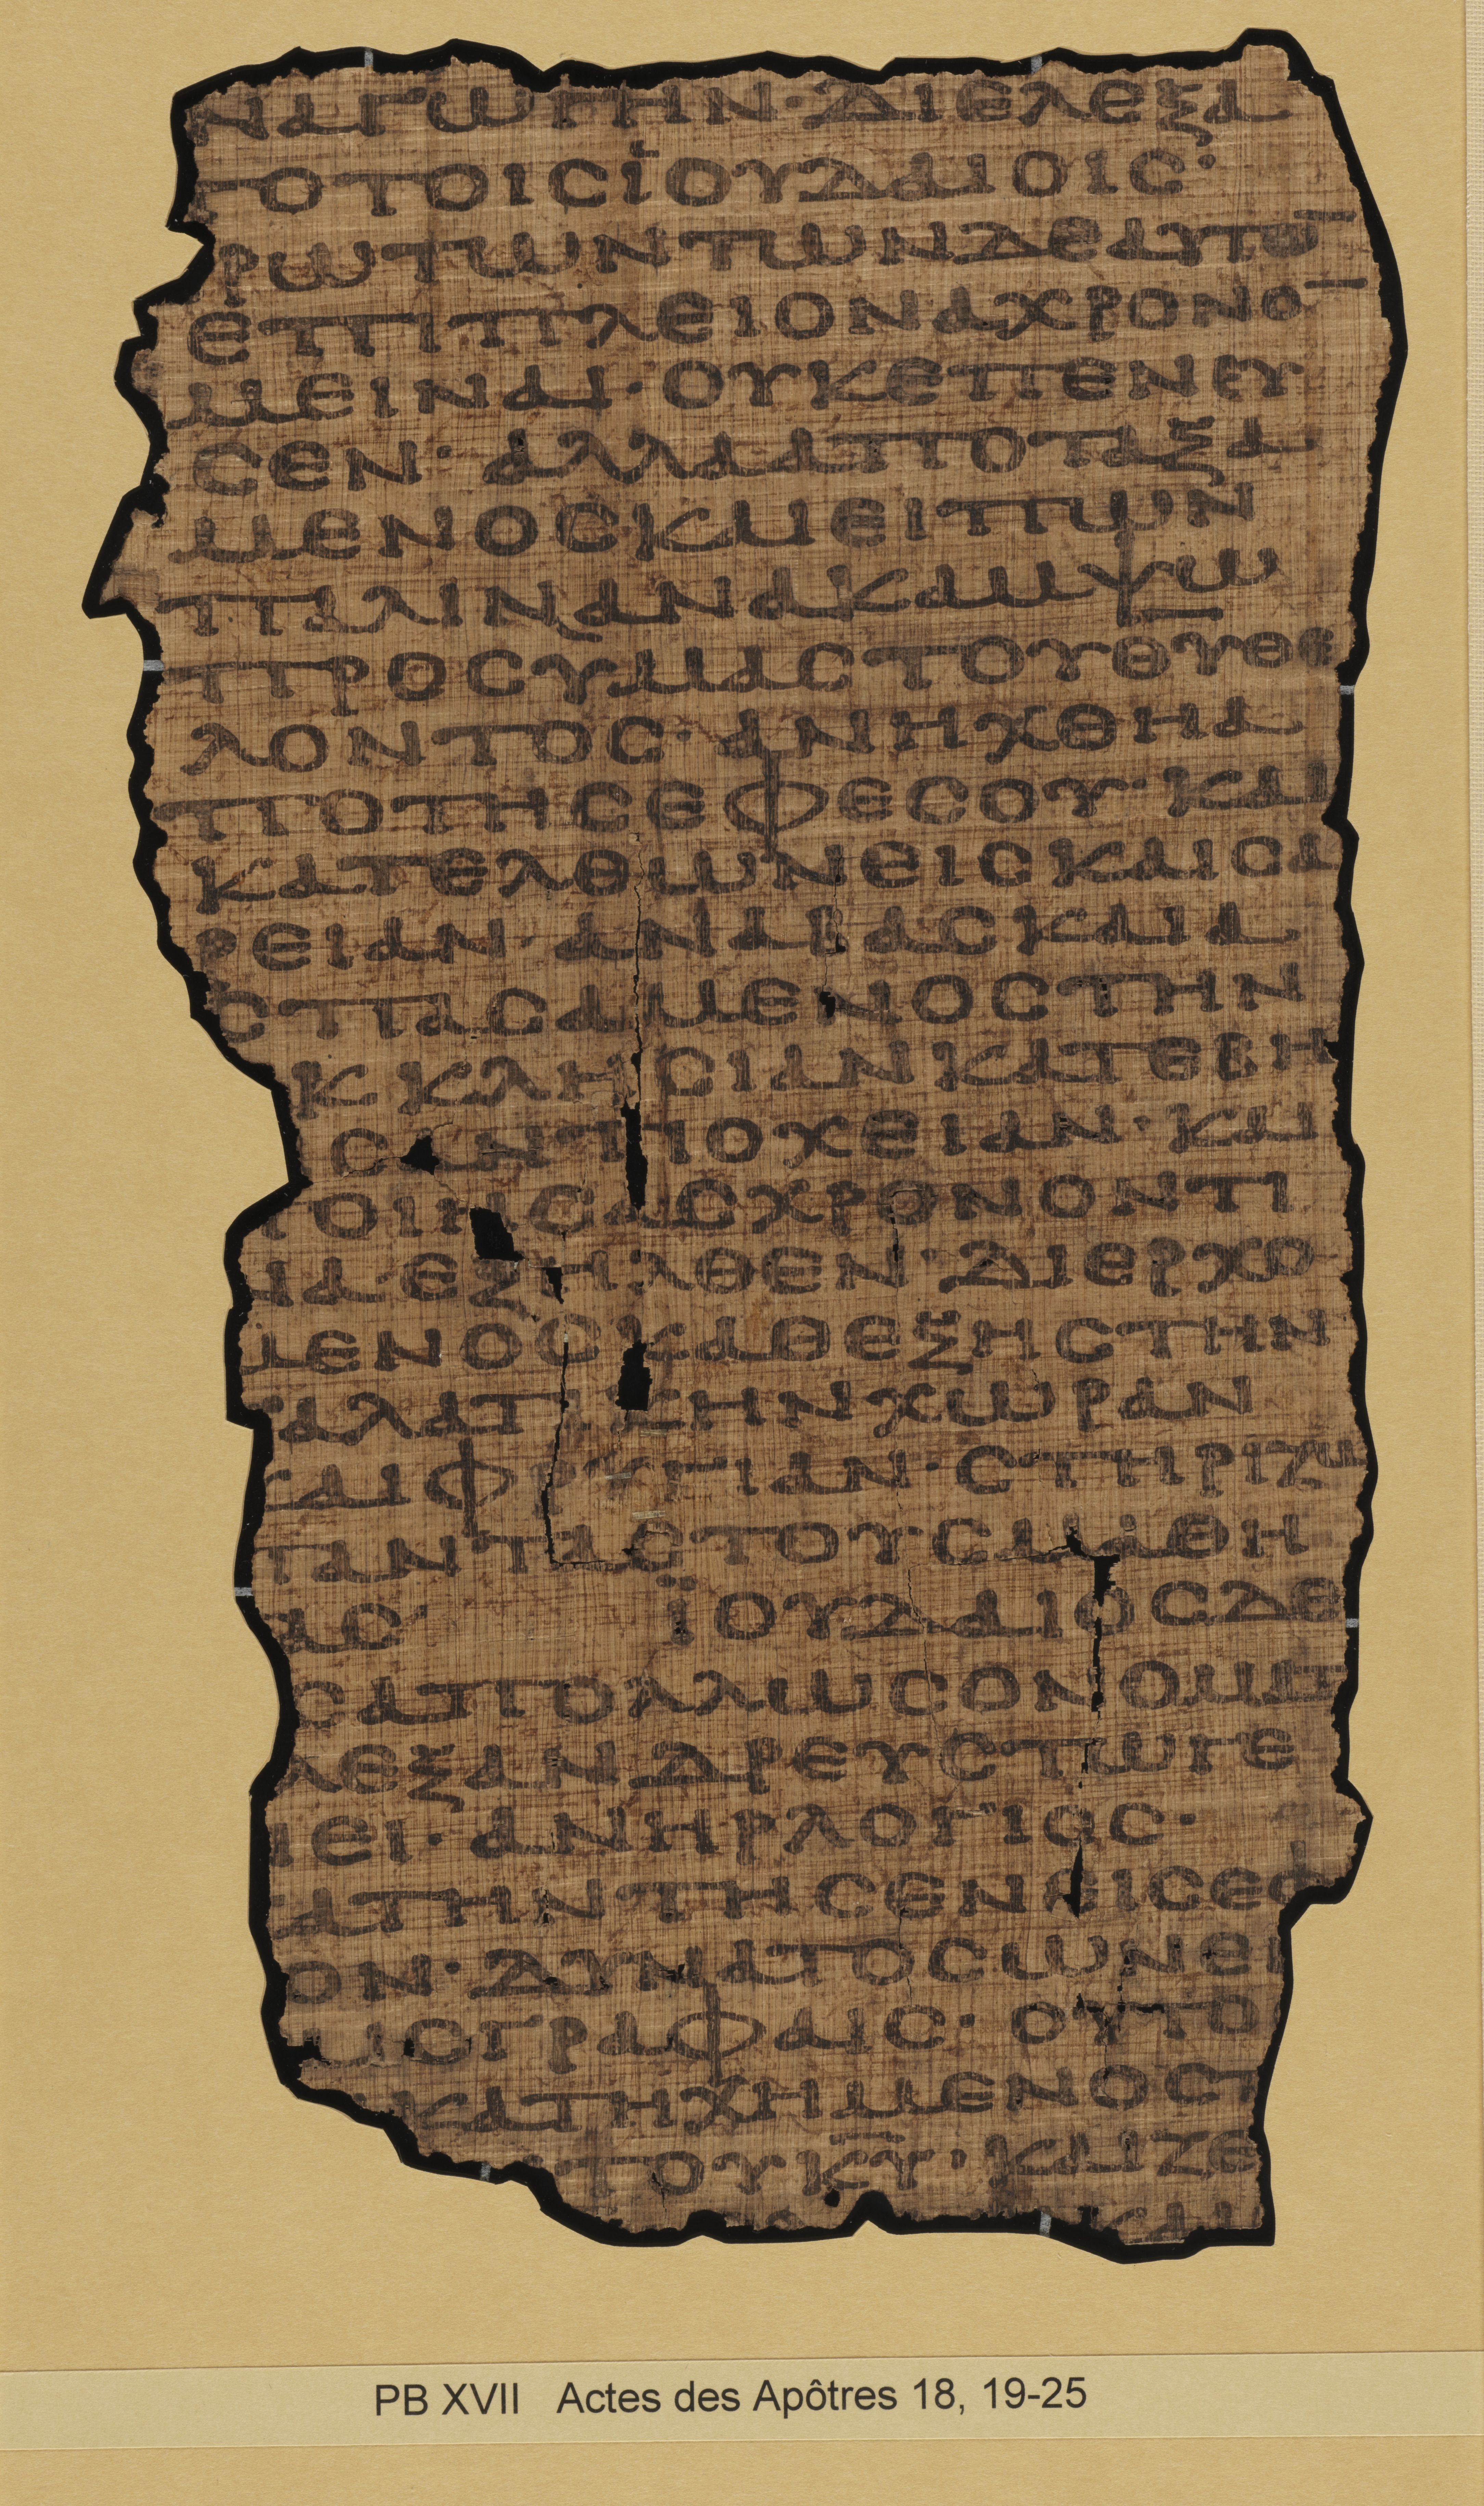 ΝΑΓΩΓΗΝ· ΔΙΕΛΕΞΑ
ΤΟΤΟΙΣΪΟΥΔΑΙΟΙΣ·
ΡΩΤΩΝΤΩΝΔΕΑΥΤΩ̅
ΕΠΙΠΛΕΙΟΝΑΧΡΟΝΟ̅
ΜΕΙΝΑΙ· ΟΥΚΕΠΕΝΕΥ
ΣΕΝ· ΑΛΛΑΑΠΟΤΑΞΑ
ΜΕΝΟΣΚΑΙΕΙΠΩΝ
ΠΑΛΙΝΑΝΑΚΑΜΨΩ
ΠΡΟΣΥΜΑΣΤΟΥΘ̅Υ̅ΘΕ
ΛΟΝΤΟΣ· ΑΝΗΧΘΗΑ
ΠΟΤΗΣΕΦΕΣΟΥ· ΚΑΙ
ΚΑΤΕΛΘΩΝΕΙΣΚΑΙΣΑ
ΡΕΙΑΝ· ΑΝΑΒΑΣΚΑΙΑ
ΣΠΑΣΑΜΕΝΟΣΤΗΝ
ΚΚΛΗΣΙΑΝΚΑΤΕΒΗ
ΣΑΝΤΙΟΧΕΙΑΝ· ΚΑΙ
ΠΟΙΗΣΑΣΧΡΟΝΟΝΤΙ
ΝΑΕΞΗΛΘΕΝ· ΔΙΕΡΧΟ
ΜΕΝΟΣΚΑΘΕΞΗΣΤΗΝ
ΓΑΛΑΤΙΚΗΝΧΩΡΑΝ
ΚΑΙΦΡΥΓΙΑΝ· ΣΤΗΡΙΖΩ
ΠΑΝΤΑΣΤΟΥΣΜΑΘΗ
ΤΑΣ· ΪΟΥΔΑΙΟΣΔΕ
ΣΑΠΟΛΛΩΣΟΝΟΜΑΤΙ
ΛΕΞΑΝΔΡΕΥΣΤΩΓΕ
ΝΕΙ· ΑΝΗΡΛΟΓΙΟΣ·
ΚΑΤΗΝΤΗΣΕΝΕΙΣΕΦ
ΣΟΝ· ΔΥΝΑΤΟΣΩΝΕΝ
ΑΙΣΓΡΑΦΑΙΣ· ΟΥΤΟ
ΚΑΤΗΧΗΜΕΝΟΣΤ
ΤΟΥΚ̅Υ̅· ΚΑΙΖΕ
ΚΑΙ
PB XVII Actes des Apôtres 18, 19-25